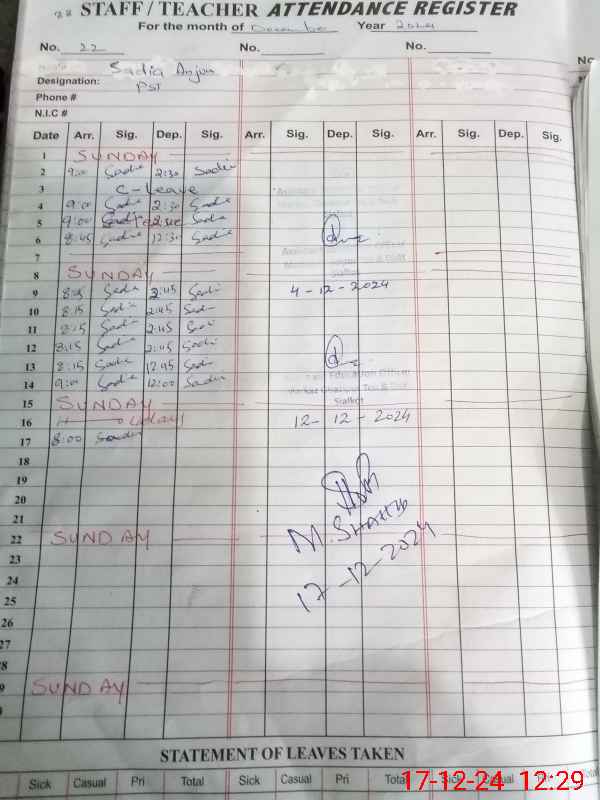 28 STAFF / TEACHER ATTENDANCE REGISTER
For the month of December Year 2024
No. 22 No. No.
Sadia Anjum
Designation: PST
Phone #
N.I.C #
Date Arr. Sig. Dep. Sig. Arr. Sig. Dep. Sig. Arr. Sig. Dep. Sig.
1 SUNDAY
2 9:00 Sadia 2:30 Sadia
3 C-Leave
4 9:00 Sadia 2:30 Sadia
5 9:00 Sadia Sadia
6 8:45 Sadia 12:30 Sadia
7
8 SUNDAY
Sialkot
9 8:15 Sadia 2:45 Sadia 4-12-2024
10 8:15 Sadia 2:45 Sadia
11 8:15 Sadia 2:45 Sadia
12 8:15 Sadia 2:45 Sadia
13 8:15 Sadia 12:45 Sadia
Education Officer
14 9:00 Sadia 12:00 Sadia
Sialkot
15 SUNDAY
16 Holiday 12-12-2024
17 8:00 Sadia
18
19
20
21
M. SHAHID
22 SUNDAY
23
17-12-2024
24
25
26
27
28
9 SUNDAY
STATEMENT OF LEAVES TAKEN
Sick Casual Pri Total Sick Casual Pri Total Sick Casual Pri Total
17-12-24 12:29